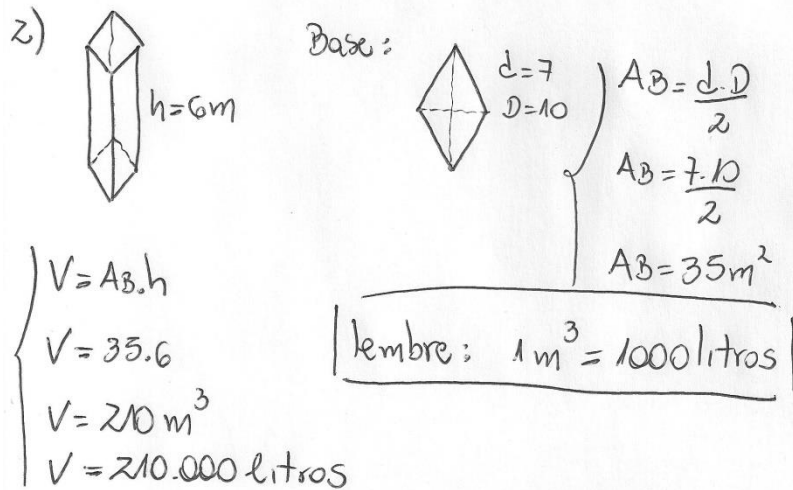 2)
h=6m
Base:
d=7
D=10
AB=d.D/2
AB=7.10/2
AB=35m²
V=AB.h
V=35.6
V=210m³
V=210.000 litros
lembre: 1m³=1000 litros